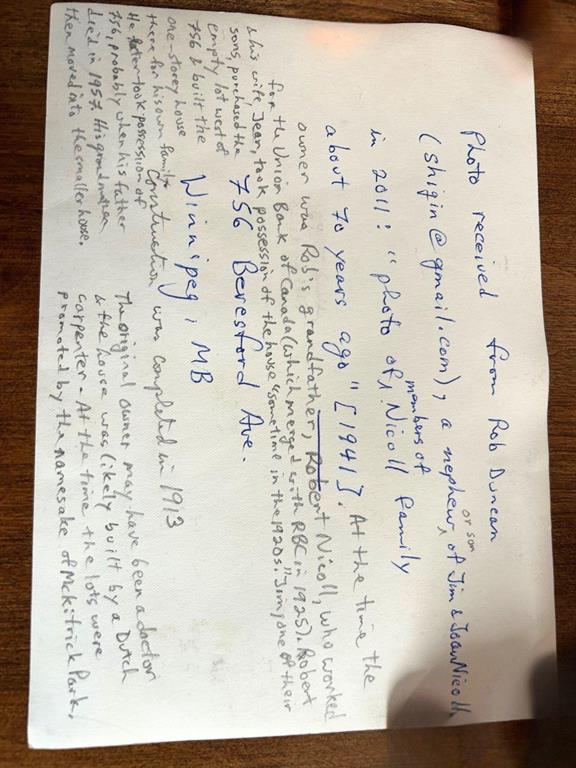 Photo received from Rob Duncan
(shigin@gmail.com), a nephew, or son of Jim & Joan Nicoll,
in 2011: "photo of members of Nicoll family
about 70 years ago" [1941]. At the time the
owner was Rob's grandfather, Robert Nicoll, who worked
for the Union Bank of Canada (which merged with RBC in 1925). Robert
& his wife, Jean, took possession of the house "sometime in the 1920s." Jim, one of their
sons, purchased the
empty lot west of
756 & built the
one-storey house
there for his own family.
He later took possession of
756, probably when his father
died in 1957. His grandmother
then moved into the smaller house.
756 Beresford Ave.
Winnipeg, MB
Construction was completed in 1913
The original owner may have been a doctor
& the house was likely built by a Dutch
carpenter. At the time the lots were
promoted by the namesake of McKitrick Park.